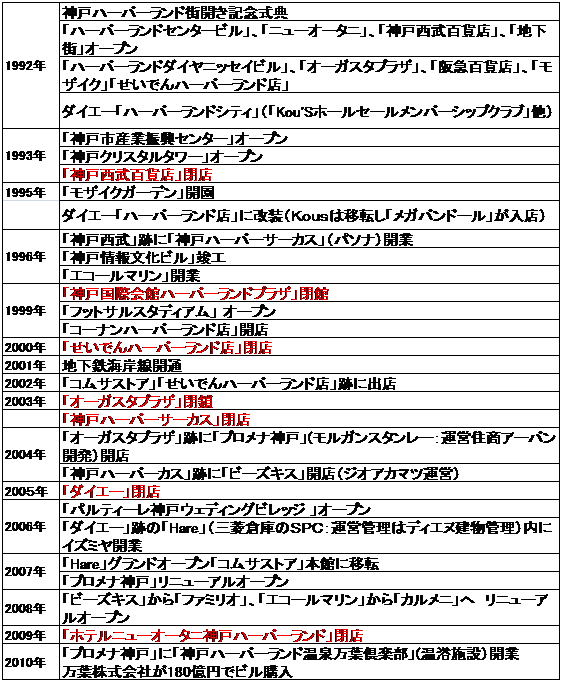 1992年
神戸ハーバーランド街開き記念式典
「ハーバーランドセンタービル」、「ニューオータニ」、「神戸西武百貨店」、「地下
街」オープン
「ハーバーランドダイヤニッセイビル」、「オーガスタプラザ」、「阪急百貨店」、「モ
ザイク」「せいでんハーバーランド店」
ダイエー「ハーバーランドシティ」(「Kou'Sホールセールメンバーシップクラブ」他)
1993年
「神戸市産業振興センター」オープン
「神戸クリスタルタワー」オープン
「神戸西武百貨店」閉店
1995年
「モザイクガーデン」開園
1996年
ダイエー「ハーバーランド店」に改装(Kousは移転し「メガバンドール」が入店)
「神戸西武」跡に「神戸ハーバーサーカス」(パソナ)開業
「神戸情報文化ビル」竣工
「エコールマリン」開業
1999年
「神戸国際会館ハーバーランドプラザ」閉館
「フットサルスタディアム」 オープン
「コーナンハーバーランド店」開店
2000年
「せいでんハーバーランド店」閉店
2001年
地下鉄海岸線開通
2002年
「コムサストア」「せいでんハーバーランド店」跡に出店
2003年
「オーガスタプラザ」閉鎖
2004年
「神戸ハーバーサーカス」閉店
「オーガスタプラザ」跡に「プロメナ神戸」(モルガンスタンレー:運営住商アーバン
開発)開店
「神戸ハーバーカス」跡に「ビーズキス」開店(ジオアカマツ運営)
2005年
「ダイエー」閉店
2006年
「パルティーレ神戸ウェディングビレッジ 」オープン
「ダイエー」跡の「Hare」(三菱倉庫のSPC:運営管理はディエヌ建物管理)内に
イズミヤ開業
2007年
「Hare」グランドオープン「コムサストア」本館に移転
「プロメナ神戸」リニューアルオープン
2008年
「ビーズキス」から「ファミリオ」、「エコールマリン」から「カルメニ」へ リニューア
ルオープン
2009年
「ホテルニューオータニ神戸ハーバーランド」閉店
2010年
「プロメナ神戸」に「神戸ハーバーランド温泉万葉倶楽部」(温浴施設)開業
万葉株式会社が180億円でビル購入